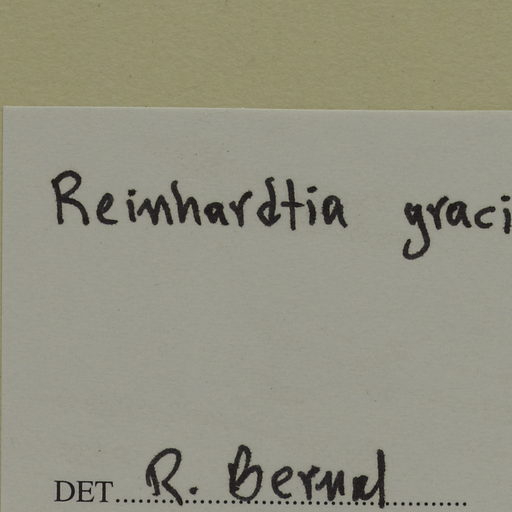 Reinhardtia graci
DET.... R. Bernal ....